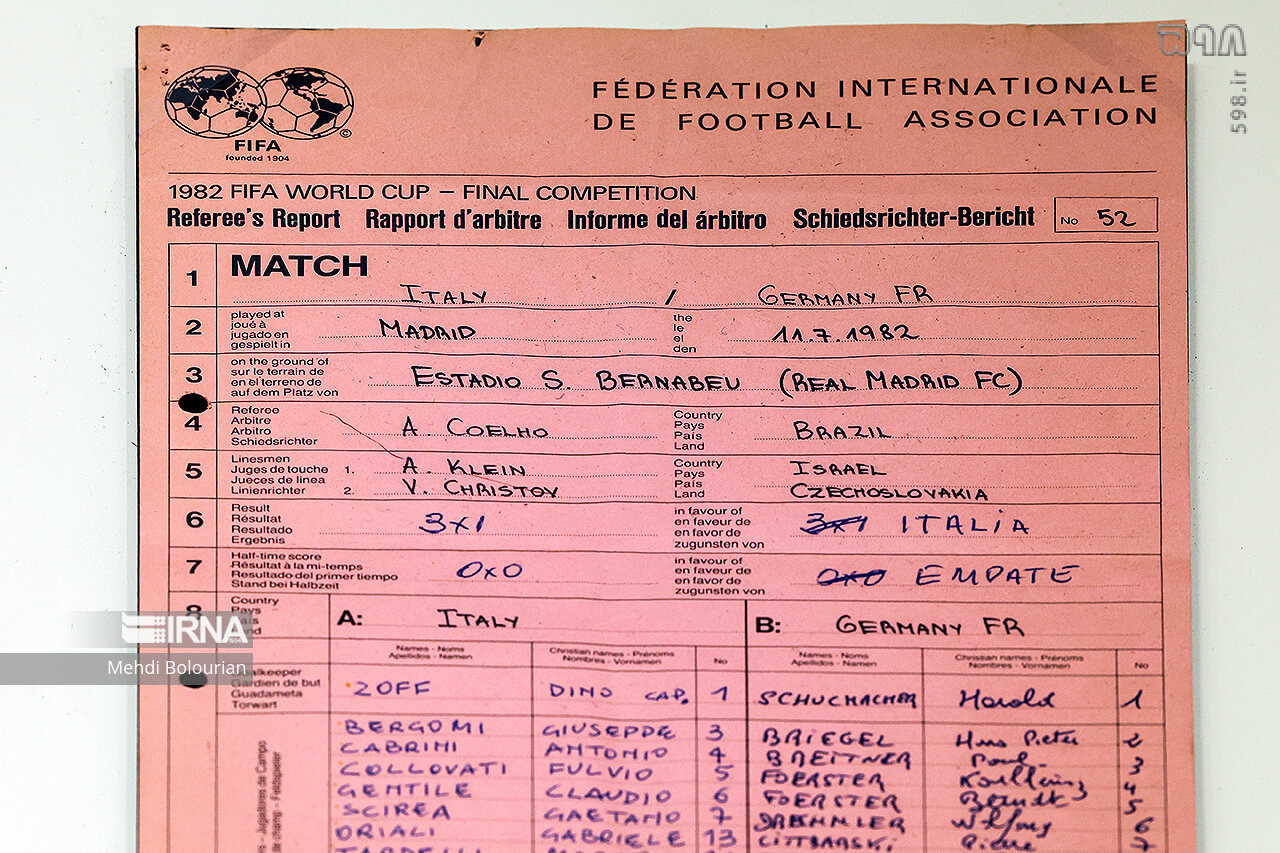 598.ir
FÉDÉRATION INTERNATIONALE
DE FOOTBALL ASSOCIATION
FIFA
founded 1904
1982 FIFA WORLD CUP – FINAL COMPETITION
Referee's Report Rapport d'arbitre Informe del árbitro Schiedsrichter-Bericht No 52
1 MATCH
ITALY / GERMANY FR
2 played at
joué à
jugado en
gespielt in
MADRID
the
le
el
den
11.7.1982
3 on the ground of
sur le terrain de
en el terreno de
auf dem Platz von
ESTADIO S. BERNABEU (REAL MADRID FC)
4 Referee
Arbitre
Arbitro
Schiedsrichter
A. COELHO
Country
Pays
País
Land
BRAZIL
5 Linesmen
Juges de touche 1. A. KLEIN
Jueces de linea
Linienrichter 2. V. CHRISTOV
Country
Pays
País
Land
ISRAEL
CZECHOSLOVAKIA
6 Result
Résultat
Resultado
Ergebnis
3x1
in favour of
en faveur de
en favor de
zugunsten von
3x1 ITALIA
7 Half-time score
Résultat à la mi-temps
Resultado del primer tiempo
Stand bei Halbzeit
0x0
in favour of
en faveur de
en favor de
zugunsten von
0x0 EMPATE
8 Country
Pays
A: ITALY B: GERMANY FR
Names - Noms
Apellidos - Namen
Christian names - Prénoms
Nombres - Vornamen
No
Names - Noms
Apellidos - Namen
Christian names - Prénoms
Nombres - Vornamen
No
Gardien de but
Guadameta
Torwart
ZOFF DINO CAP. 1 SCHUMACHER Harold 1
BERGOMI GIUSEPPE 3 BRIEGEL Hans Peter 2
CABRINI ANTONIO 4 BREITNER Paul 3
COLLOVATI FULVIO 5 FOERSTER Karlheinz 4
GENTILE CLAUDIO 6 FOERSTER Bernd 5
SCIREA GAETANO 7 6
ORIALI GABRIELE 13 LITTBARSKI Pierre 7
TARDELLI
Jugadores de Campo
Feldspieler
IRNA
Mehdi Bolourian